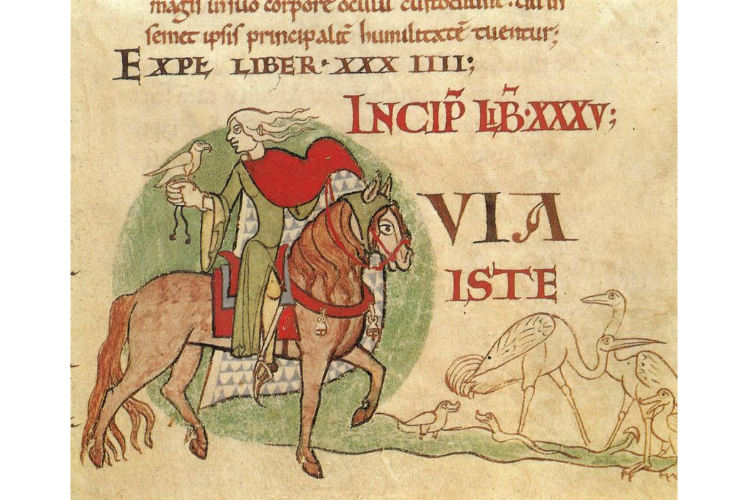 magis in suo corpore oculū custodiunt · in
semet ipsis principalit̄ humilitatē tuentur;
EXPL LIBER · XXX IIII;
INCIP̃ LIB̃ · XXXV;
VIA
ISTE